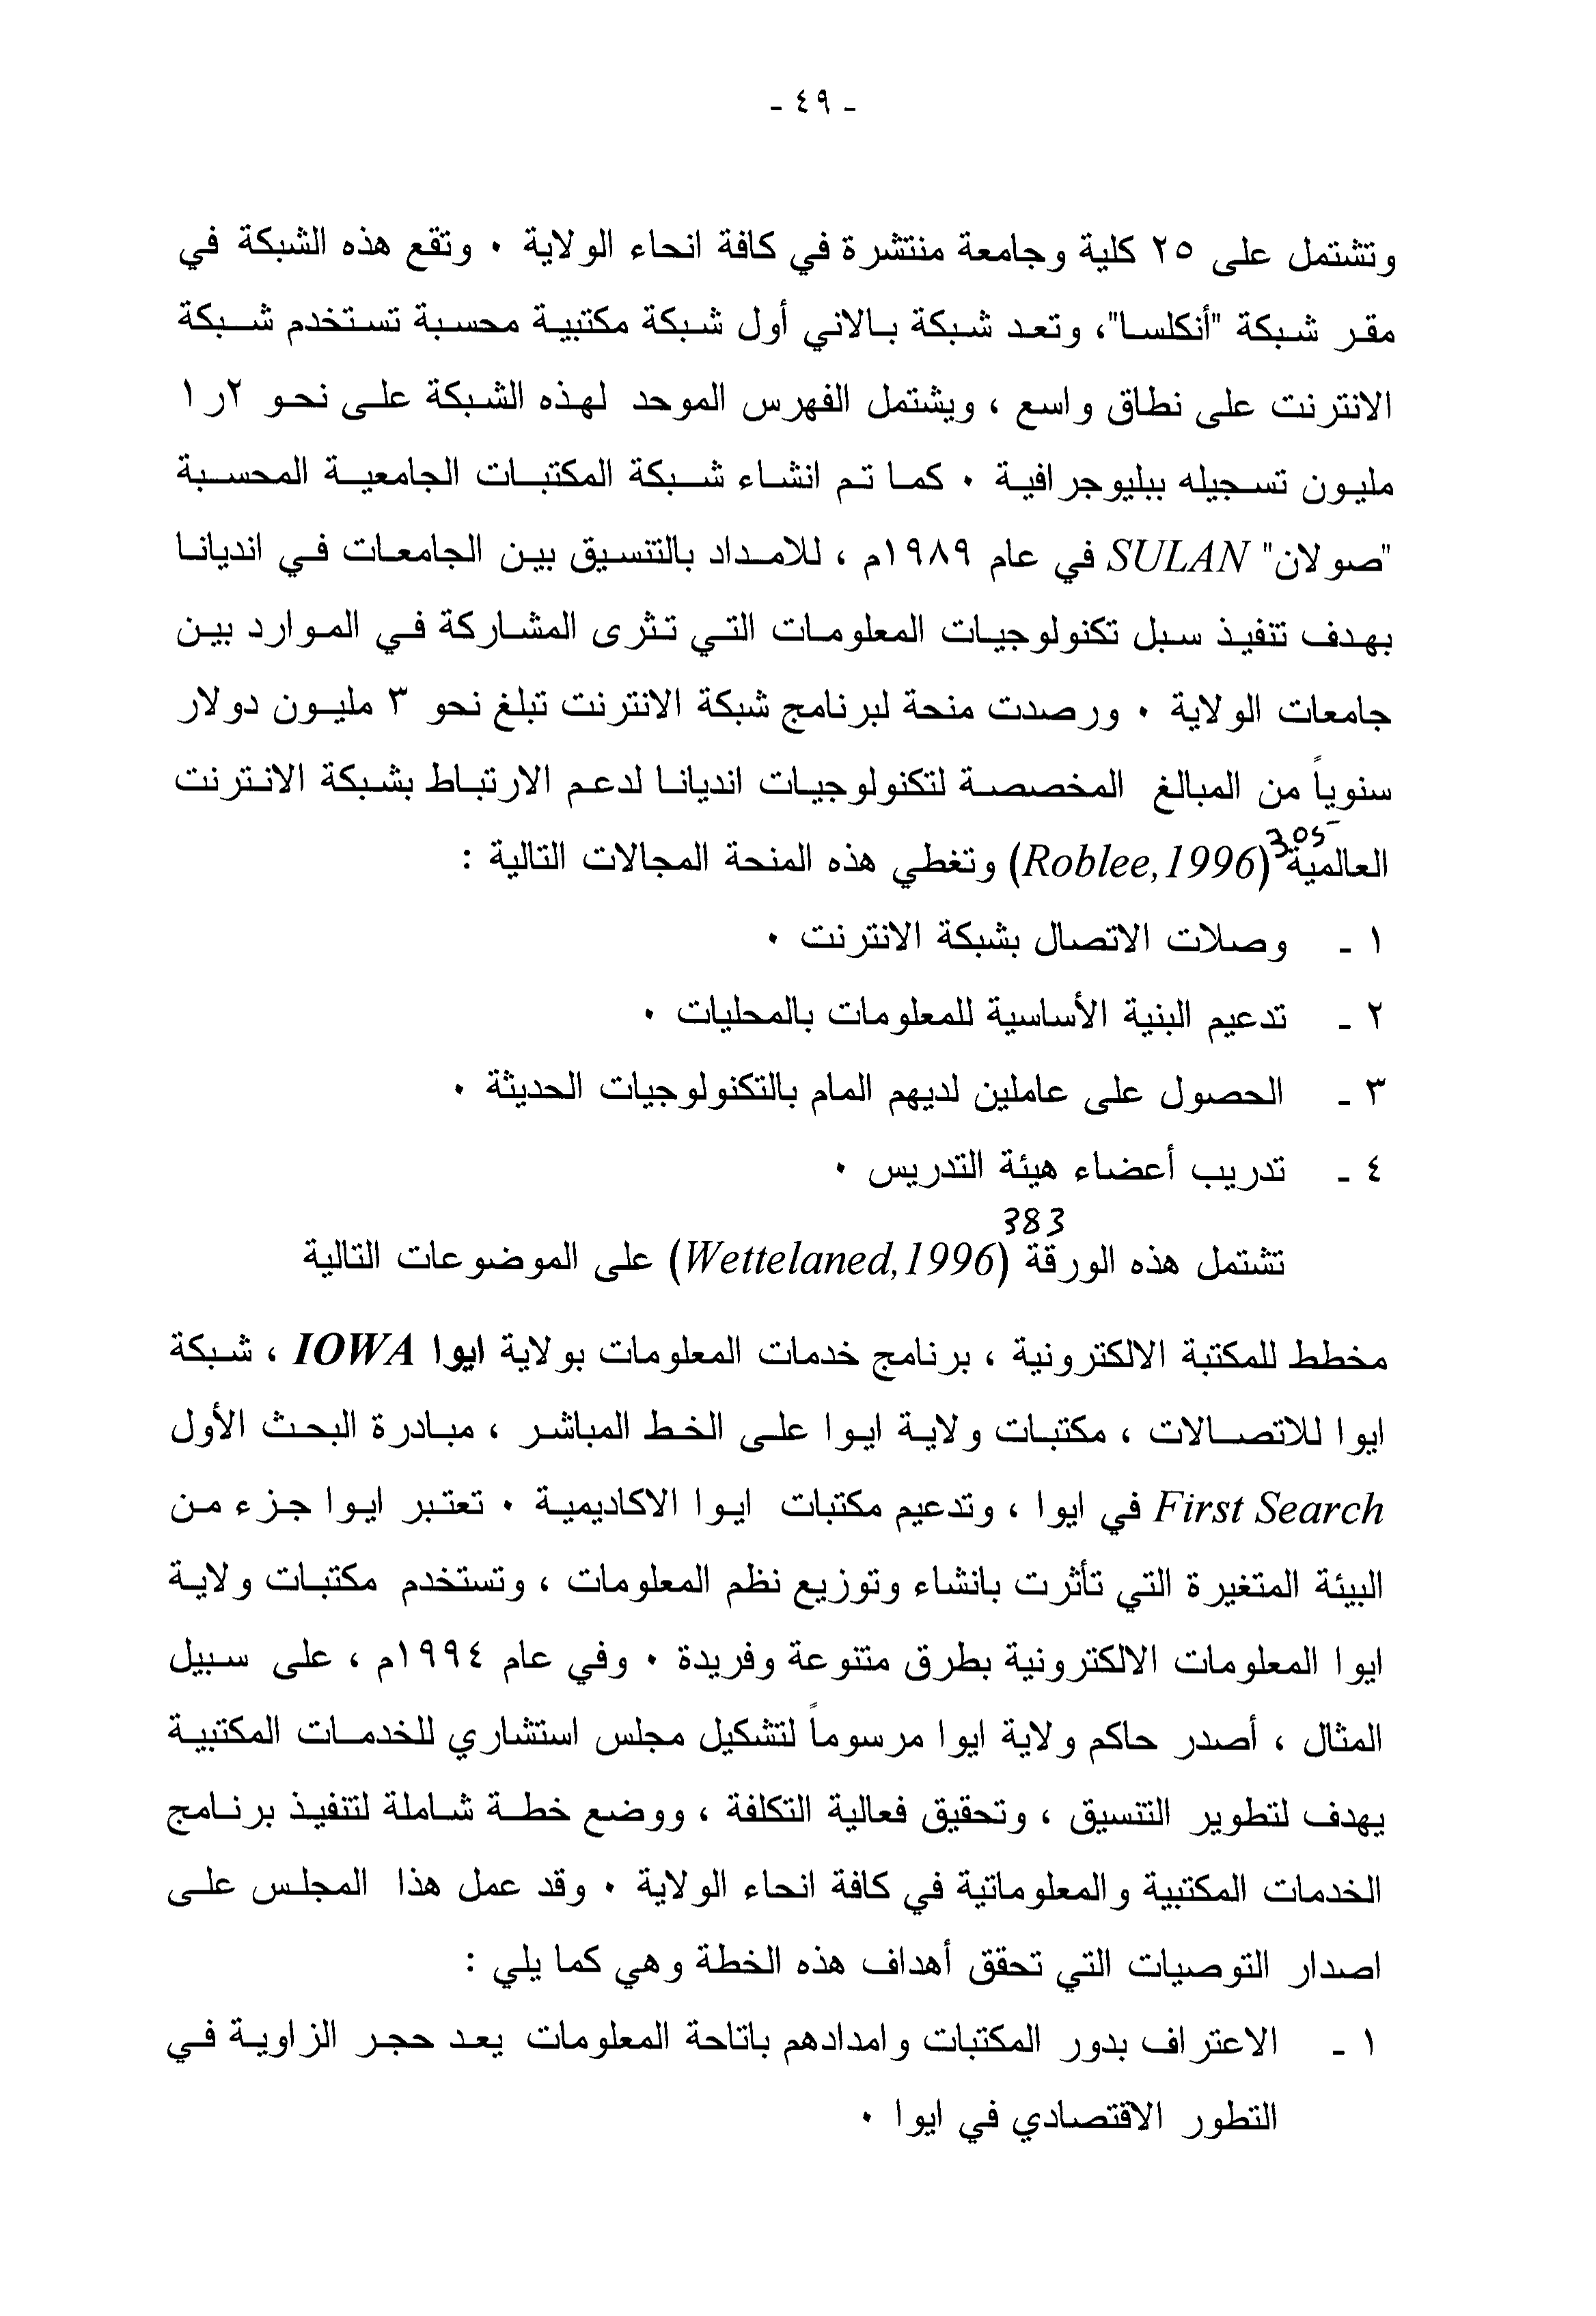 - ٤٩ -
وتشتمل على ٢٥ كلية وجامعة منتشرة في كافة انحاء الولاية ٠ وتقع هذه الشبكة في
مقر شبكة "أنكلسا"، وتعد شبكة بالاني أول شبكة مكتبية محسبة تستخدم شبكة
الانترنت على نطاق واسع ، ويشتمل الفهرس الموحد لهذه الشبكة على نحو ٢ر١
مليون تسجيله ببليوجرافية ٠ كما تم انشاء شبكة المكتبات الجامعية المحسبة
"صولان" SULAN في عام ١٩٨٩م ، للامداد بالتنسيق بين الجامعات في انديانا
بهدف تنفيذ سبل تكنولوجيات المعلومات التي تثرى المشاركة في الموارد بين
جامعات الولاية ٠ ورصدت منحة لبرنامج شبكة الانترنت تبلغ نحو ٣ مليون دولار
سنوياً من المبالغ المخصصة لتكنولوجيات انديانا لدعم الارتباط بشبكة الانترنت
العالمية 305 (Roblee,1996) وتغطي هذه المنحة المجالات التالية :
١ - وصلات الاتصال بشبكة الانترنت ٠
٢ - تدعيم البنية الأساسية للمعلومات بالمحليات ٠
٣ - الحصول على عاملين لديهم المام بالتكنولوجيات الحديثة ٠
٤ - تدريب أعضاء هيئة التدريس ٠
383
تشتمل هذه الورقة (Wettelaned,1996) على الموضوعات التالية
مخطط للمكتبة الالكترونية ، برنامج خدمات المعلومات بولاية ايوا IOWA ، شبكة
ايوا للاتصالات ، مكتبات ولاية ايوا على الخط المباشر ، مبادرة البحث الأول
First Search في ايوا ، وتدعيم مكتبات ايوا الاكاديمية ٠ تعتبر ايوا جزء من
البيئة المتغيرة التي تأثرت بانشاء وتوزيع نظم المعلومات ، وتستخدم مكتبات ولاية
ايوا المعلومات الالكترونية بطرق متنوعة وفريدة ٠ وفي عام ١٩٩٤م ، على سبيل
المثال ، أصدر حاكم ولاية ايوا مرسوماً لتشكيل مجلس استشاري للخدمات المكتبية
يهدف لتطوير التنسيق ، وتحقيق فعالية التكلفة ، ووضع خطة شاملة لتنفيذ برنامج
الخدمات المكتبية والمعلوماتية في كافة انحاء الولاية ٠ وقد عمل هذا المجلس على
اصدار التوصيات التي تحقق أهداف هذه الخطة وهي كما يلي :
١ - الاعتراف بدور المكتبات وامدادهم باتاحة المعلومات يعد حجر الزاوية في
التطور الاقتصادي في ايوا ٠